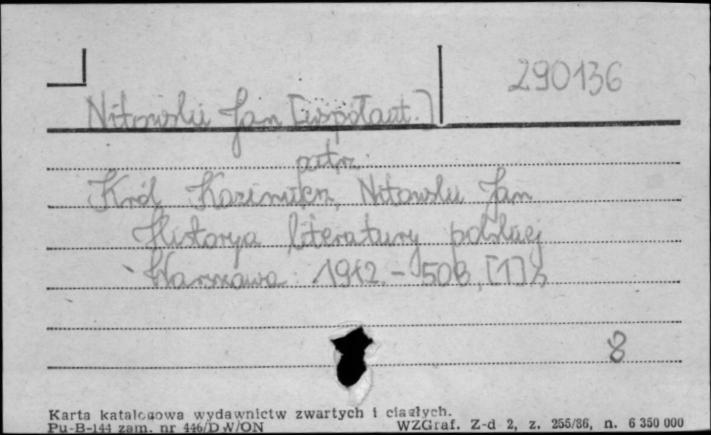 290136
Nitowski Jan [współaut.]
patrz
Król Kazimierz, Nitowski Jan
Historya literatury polskiej
Warszawa 1912. - 508, [1] s
8
Karta katalogowa wydawnictw zwartych i ciągłych.
Pu-B-144 zam. nr 446/D W/ON WZGraf. Z-d 2, z. 255/86, n. 6 350 000